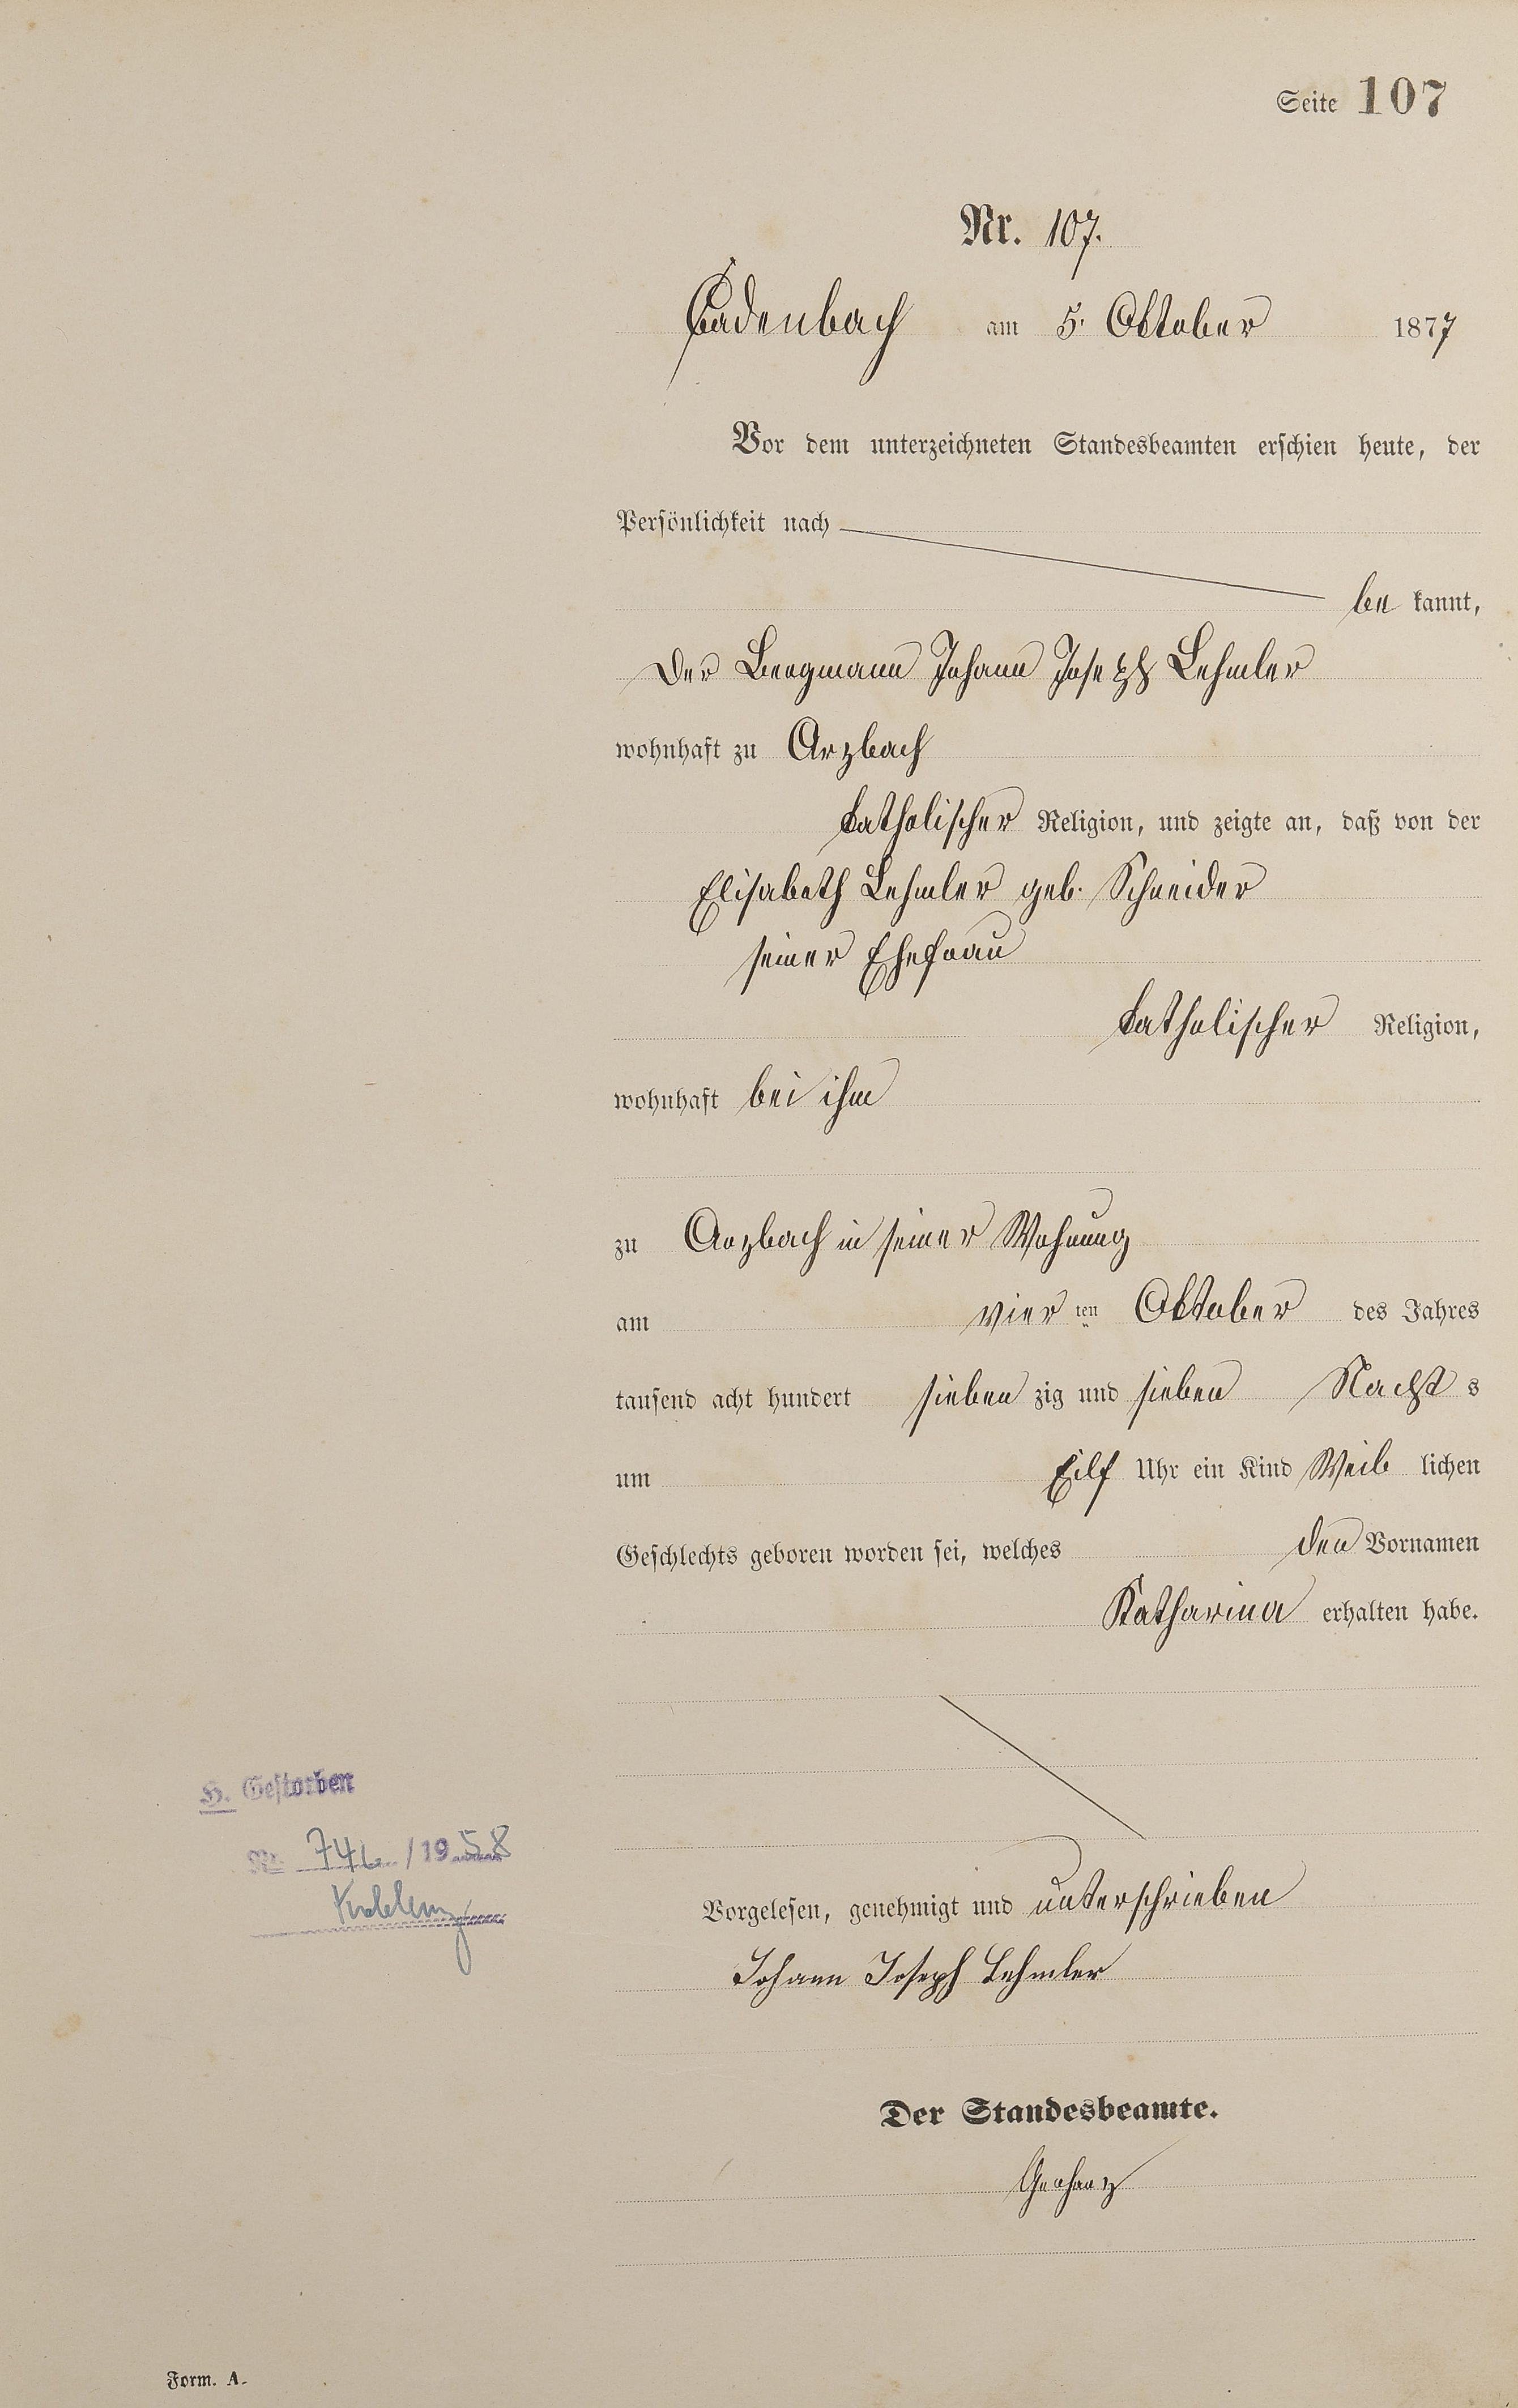 Seite 107
Nr. 107.
Cadenbach am 5. Oktober 1877
Vor dem unterzeichneten Standesbeamten erschien heute, der
Persönlichkeit nach
be kannt,
der Bergmann Johann Joseph Lehmler
wohnhaft zu Arzbach
katholischer Religion, und zeigte an, daß von der
Elisabeth Lehmler geb. Schneider
seiner Ehefrau
katholischer Religion,
wohnhaft bei ihm
zu Arzbach in seiner Wohnung
am vier ten Oktober des Jahres
tausend acht hundert sieben zig und sieben Nacht s
um Eilf Uhr ein Kind Weib lichen
Geschlechts geboren worden sei, welches den Vornamen
Katharina erhalten habe.
H. Gestorben
Nr. 746 /1958
Koblenz
Vorgelesen, genehmigt und unterschrieben
Johann Joseph Lehmler
Der Standesbeamte.
Gerharz
Form. A.